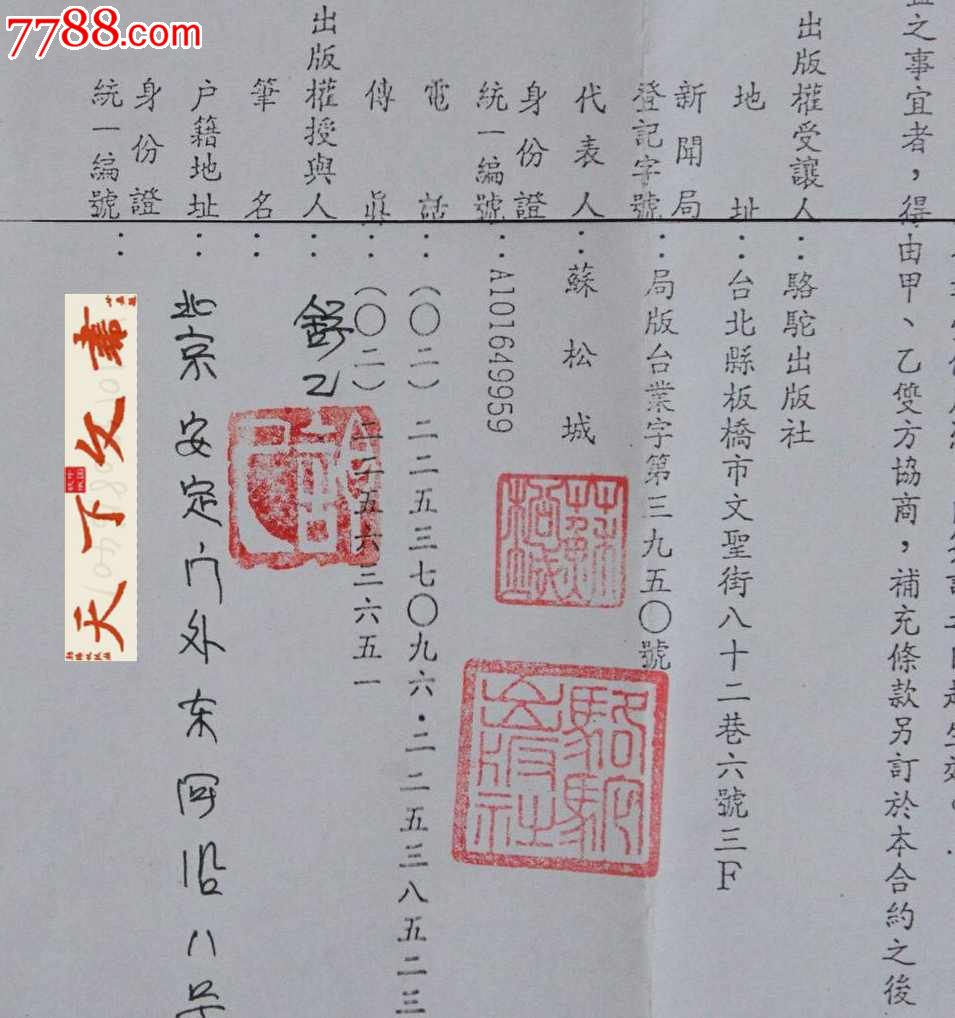 7788.com
之事宜者，得由甲、乙雙方協商，補充條款另訂於本合約之後
出版權受讓人：駱駝出版社
地址：台北縣板橋市文聖街八十二巷六號三F
新聞局登記字號：局版台業字第三九五〇號
代表人：蘇松城
身份證統一編號：A101649959
電話：（〇二）二二五三七〇九六．二二五三八五二三
傳眞：（〇二）二二五六三六五一
出版權授與人：舒乙
筆名：
户籍地址：北京安定门外东河沿八号
身份證統一編號：
蘇松城
駱駝出版社
天下文書